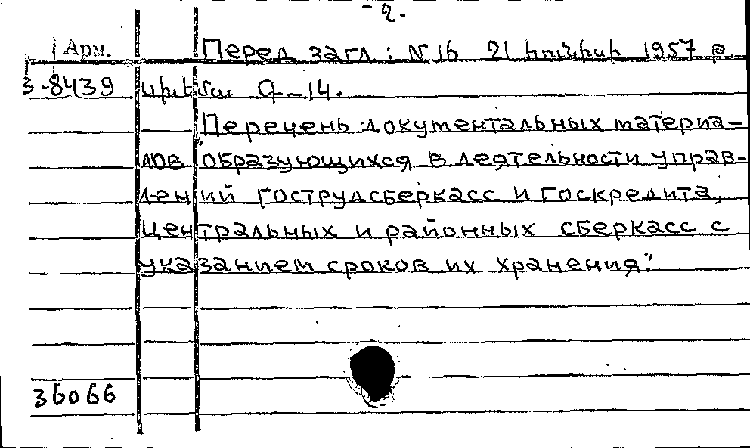 - 2.
Арм. Перед загл.: N 16 21 հունիսի 1957 թ.
3-8439 սխեմա Գ-14.
Перечень документальных материа-
лов образующихся в деятельности управ-
лений гострудсберкасс и госкредита,
центральных и районных сберкасс с
указанием сроков их хранения."
36066